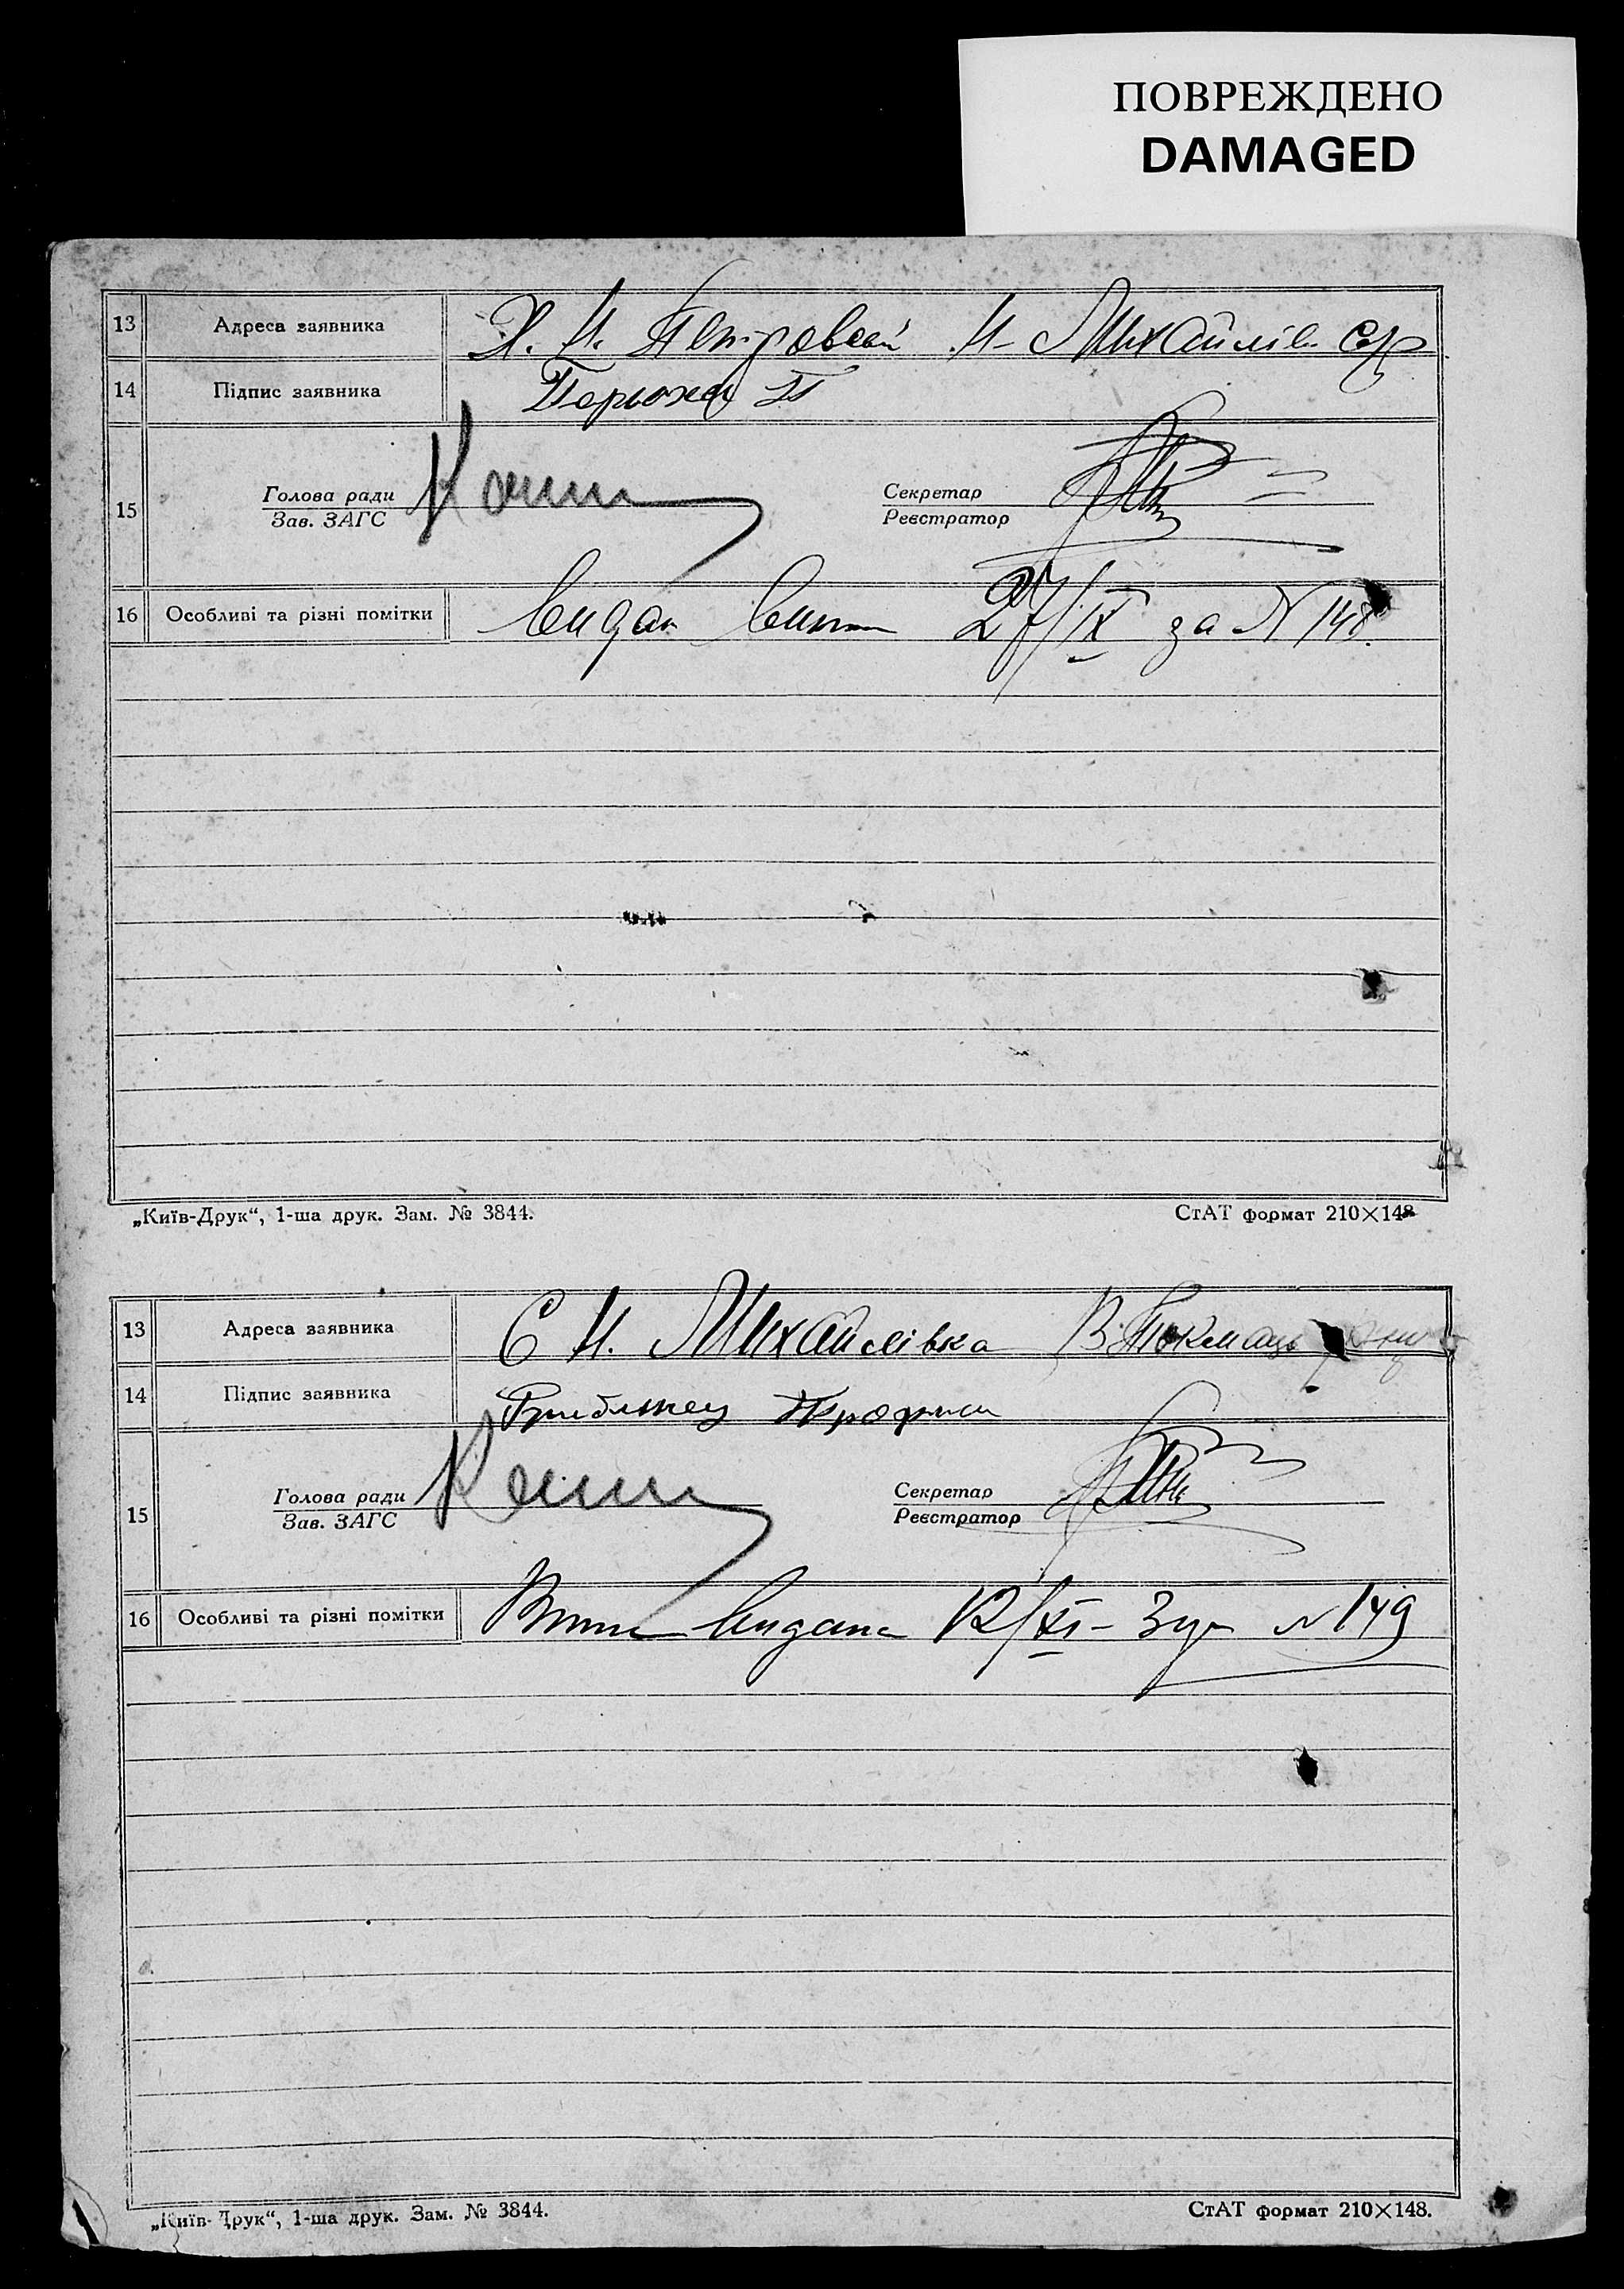 ПОВРЕЖДЕНО
DAMAGED
13 Адреса заявника Х. Н. Петровський Н-Михайлів. с/р
14 Підпис заявника П
15 Голова ради Секретар
Зав. ЗАГС Реєстратор
16 Особливі та різні помітки видан 27/IX за N 148.
„Київ-Друк“, 1-ша друк. Зам. № 3844. СтАТ формат 210×148
13 Адреса заявника С Н. Михайлівка В.Токмацьк
14 Підпис заявника
15 Голова ради Секретар
Зав. ЗАГС Реєстратор
16 Особливі та різні помітки видана 12/XI- N 149
„Київ-Друк“, 1-ша друк. Зам. № 3844. СтАТ формат 210×148.